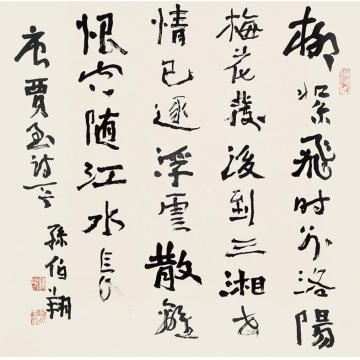 柳絮飛时别洛陽
梅花發後到三湘世
情已逐浮雲散離
恨空随江水長
唐賈至詩一首
孫伯翔